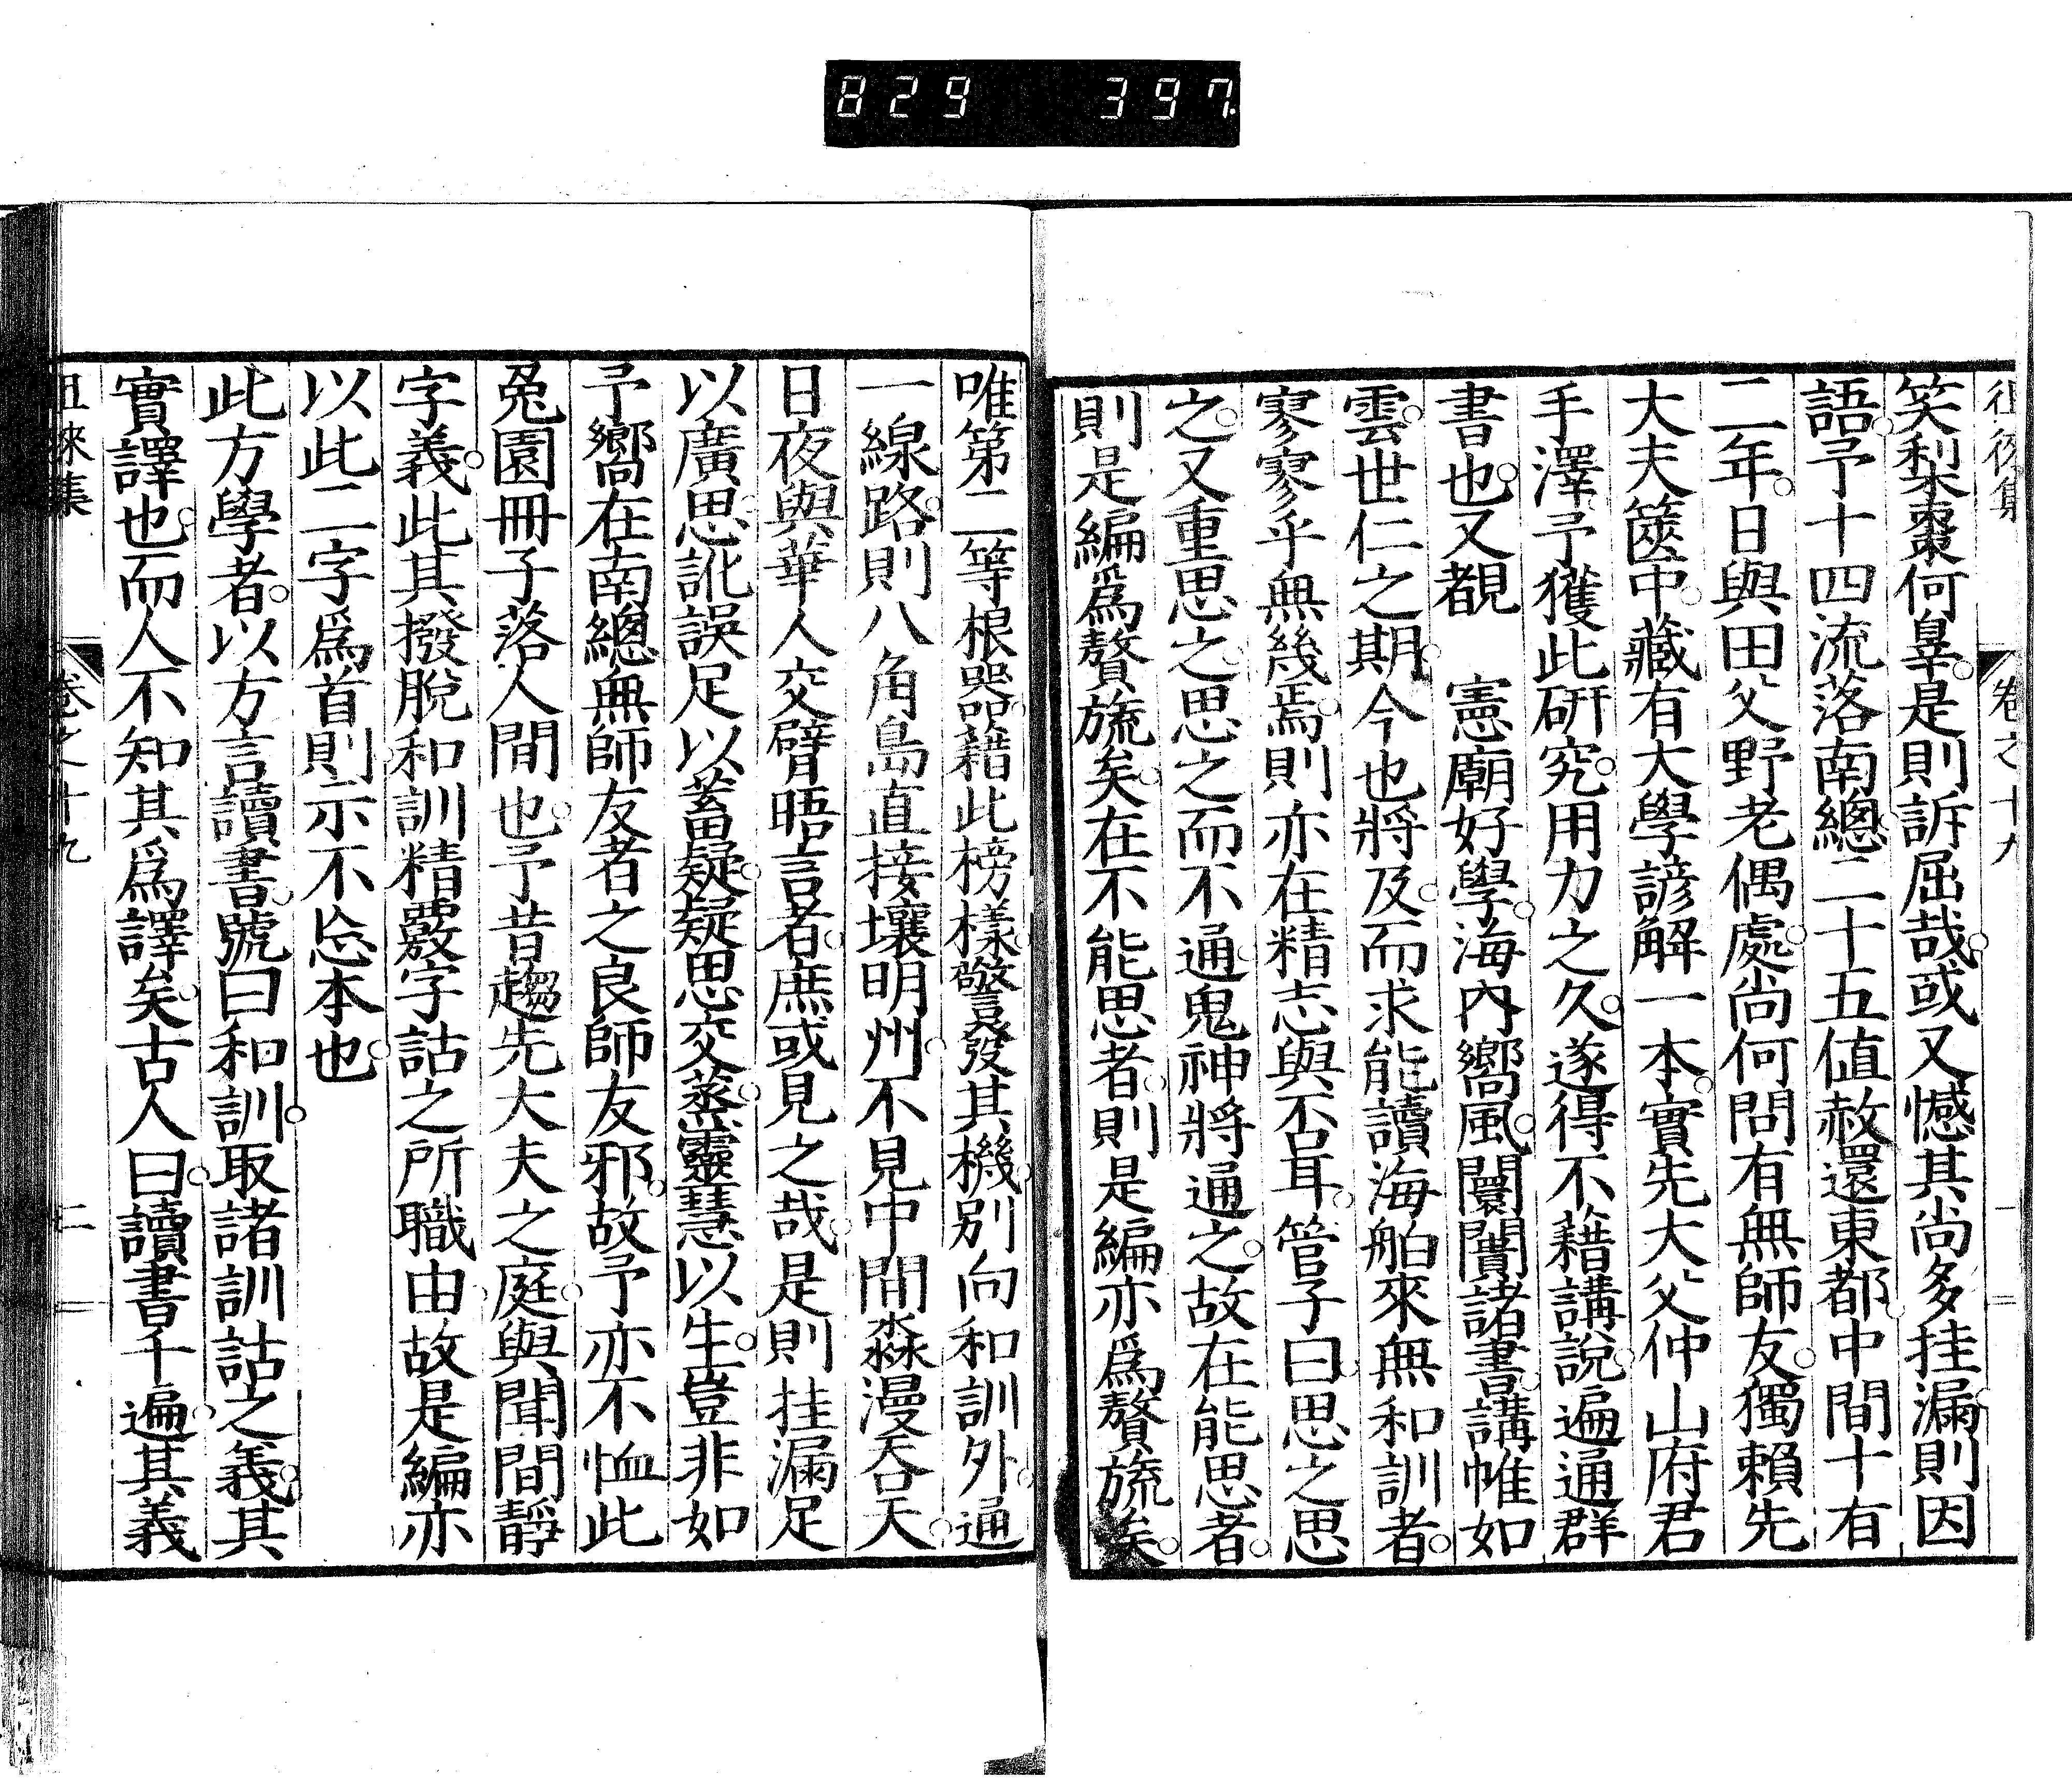 829 397
徂徠集 卷之十九
笑利棗棗何辜是則訴屈哉或又憾其尚多挂漏則因
語予十四流落南總二十五值赦還東都中間十有
二年日與田父野老偶處尚何問有無師友獨賴先
大夫篋中藏有大學諺解一本實先大父仲山府君
手澤予獲此研究用力之久遂得不藉講說遍通群
書也又覩 憲廟好學海內嚮風闤闠諸書講帷如
雲世仁之期今也將及而求能讀海舶來無和訓者
寥寥乎無幾焉則亦在精志與否耳管子曰思之思
之又重思之思之而不通鬼神將通之故在能思者
則是編爲贅旒矣在不能思者則是編亦爲贅旒矣
唯第二等根器藉此榜樣警發其機別向和訓外通
一線路則八角島直接壤明州不見中間淼漫吞天
日夜與華人交臂晤言者庶或見之哉是則挂漏足
以廣思訛誤足以蓄疑疑思交蒸靈慧以生豈非如
予嚮在南總無師友者之良師友邪故予亦不恤此
兔園冊子落人間也予昔趨先大夫之庭與聞間靜
字義此其撥脫和訓精覈字詁之所職由故是編亦
以此二字爲首則示不忘本也
此方學者以方言讀書號曰和訓取諸訓詁之義其
實譯也而人不知其爲譯矣古人曰讀書千遍其義
徂徠集 卷之十九 二